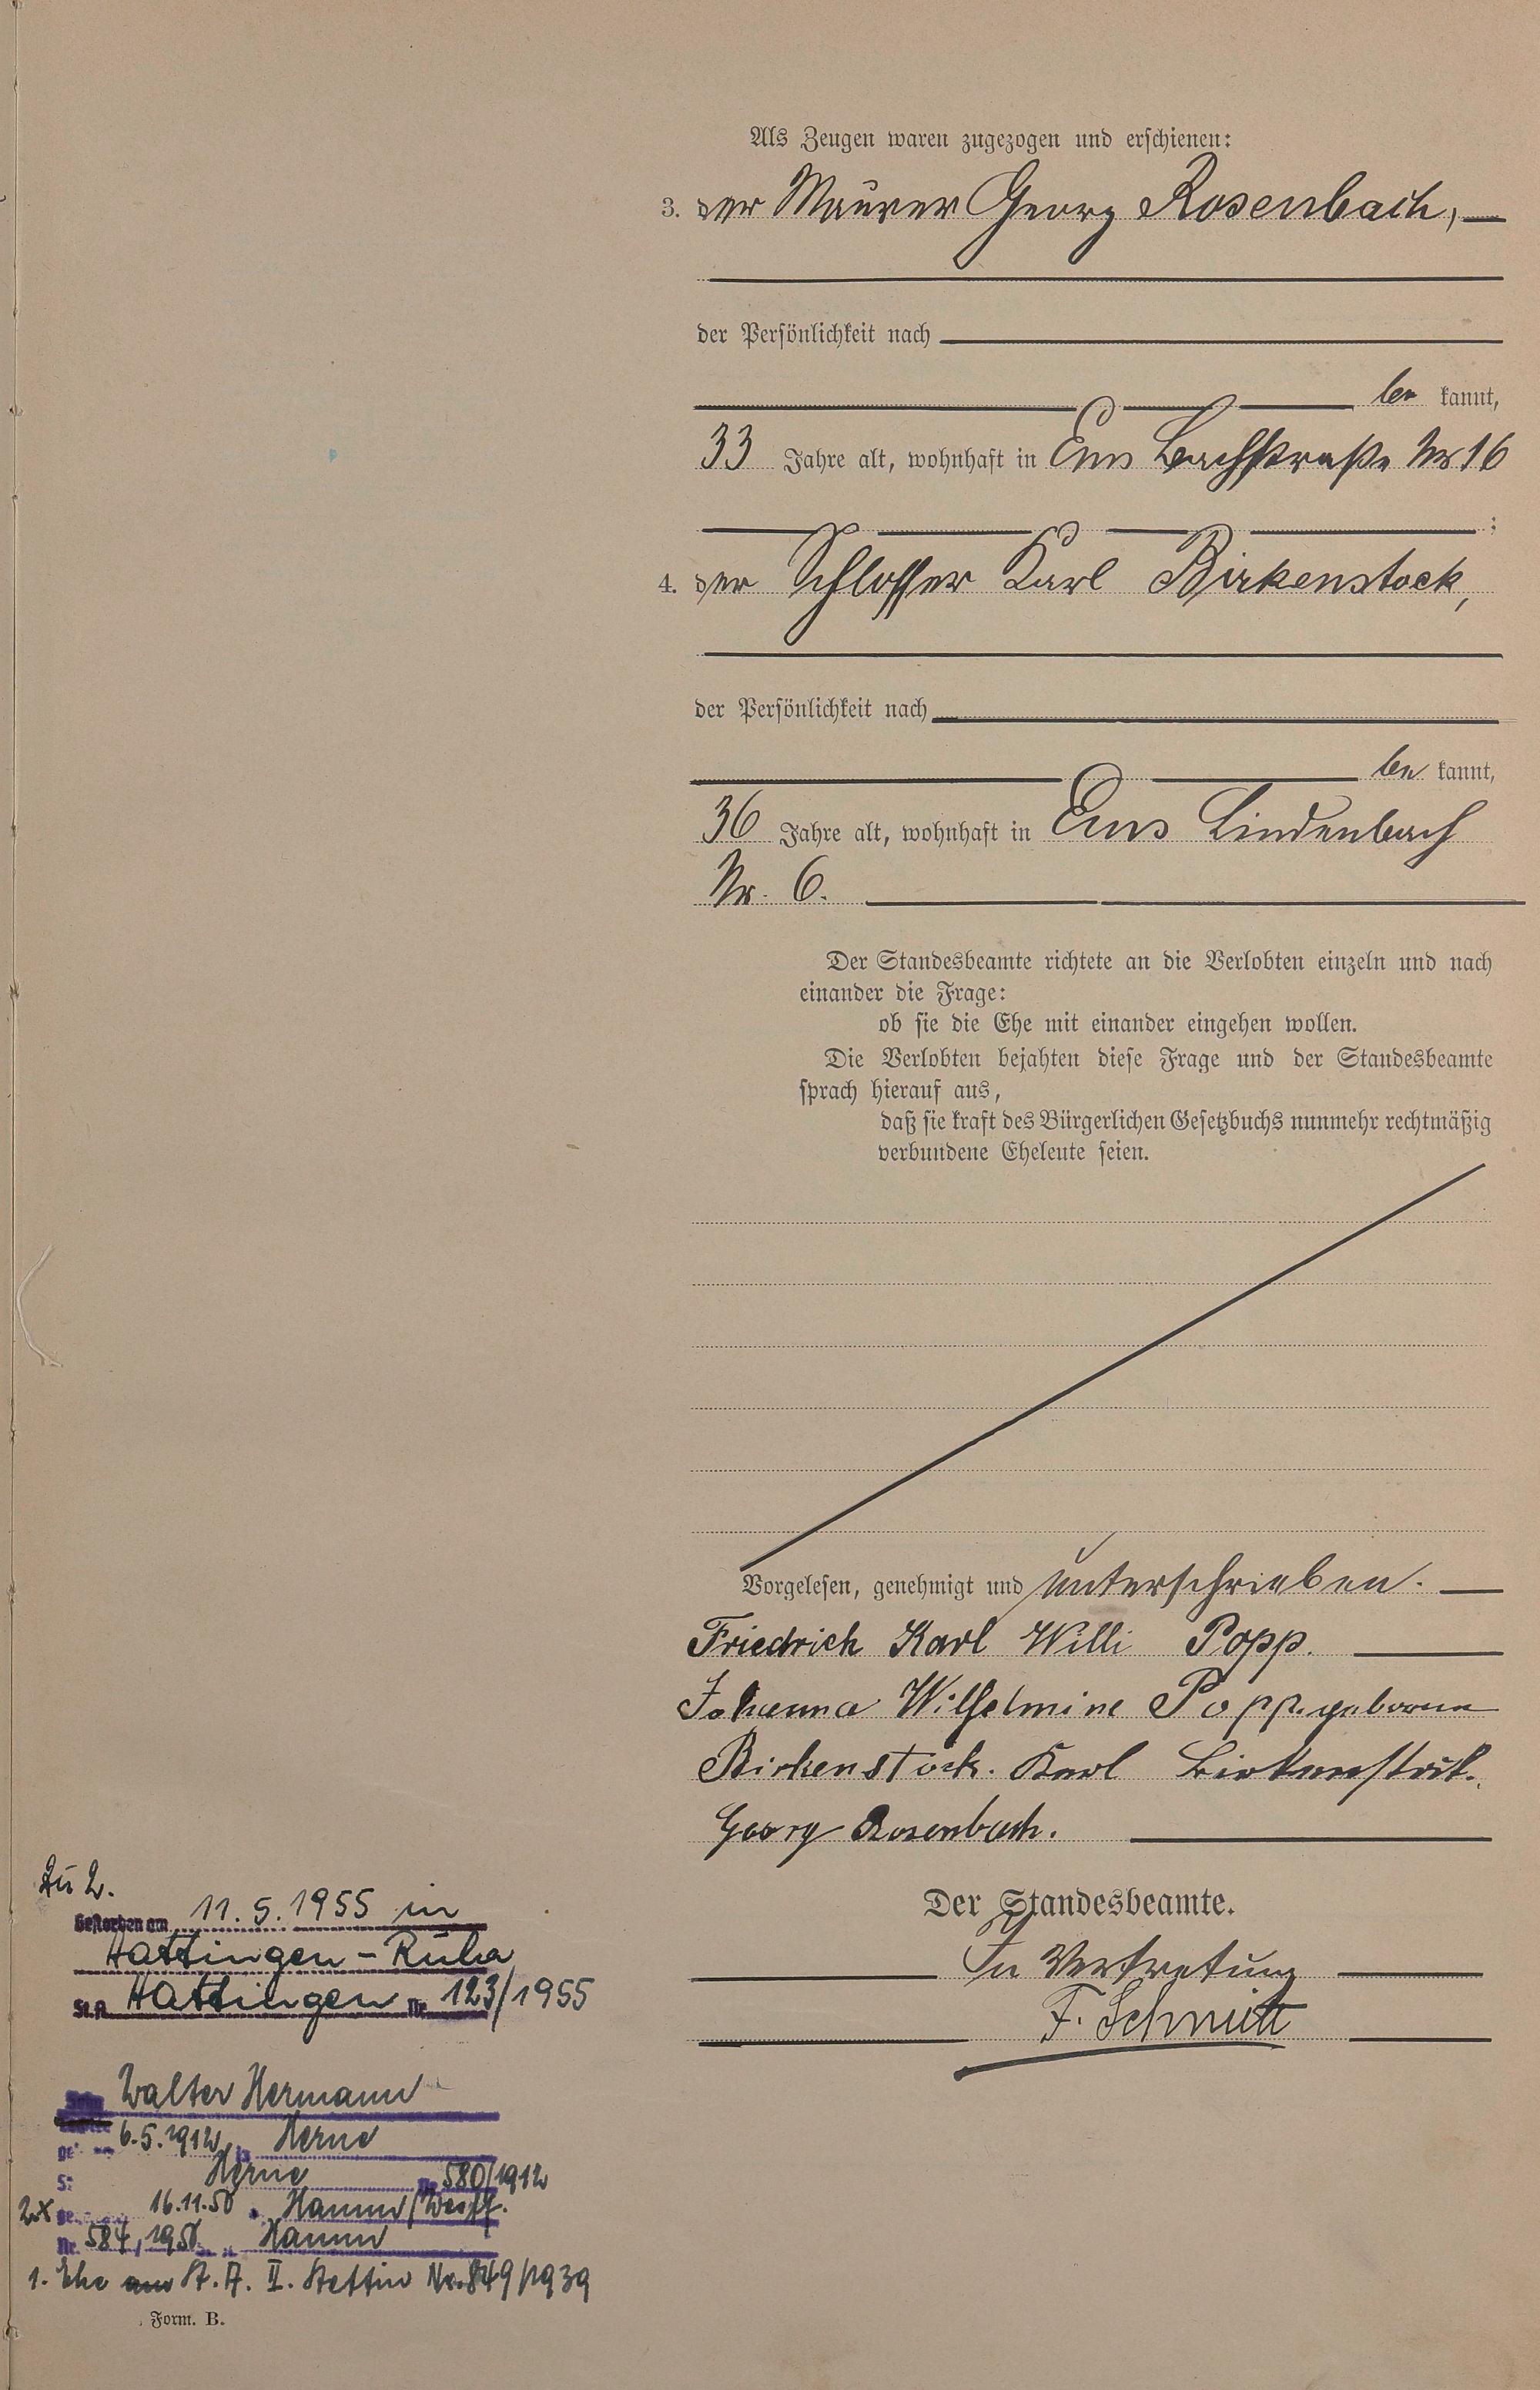 Als Zeugen waren zugezogen und erschienen:
3. der Maurer Georg Rosenbach,
der Persönlichkeit nach
be kannt,
33 Jahre alt, wohnhaft in Ems Bachstraße Nr 16
;
4. der Schlosser Karl Birkenstock,
der Persönlichkeit nach
be kannt,
36 Jahre alt, wohnhaft in Ems Lindenbach
Nr. 6.
Der Standesbeamte richtete an die Verlobten einzeln und nach
einander die Frage:
ob sie die Ehe mit einander eingehen wollen.
Die Verlobten bejahten diese Frage und der Standesbeamte
sprach hierauf aus,
daß sie kraft des Bürgerlichen Gesetzbuchs nunmehr rechtmäßig
verbundene Eheleute seien.
Vorgelesen, genehmigt und unterschrieben.
Friedrich Karl Willi Popp.
Johanna Wilhelmine Popp. geborene
Birkenstock. Karl Birkenstock.
Georg Rosenbach.
Der Standesbeamte.
In Vertretung
F. Schmitt
Zu 2.
Gestorben am 11.5.1955 in
Hattingen-Ruhr
St.A. Hattingen Nr. 123/1955
Sohn Walter Hermann
6.5.1912 in Herne
Herne Nr. 580/1912
2.x 16.11.50 Hamm/Westf.
Nr. 584, 1950 Hamm
1. Ehe St. A. II. Stettin Nr. 849/1939
Form. B.